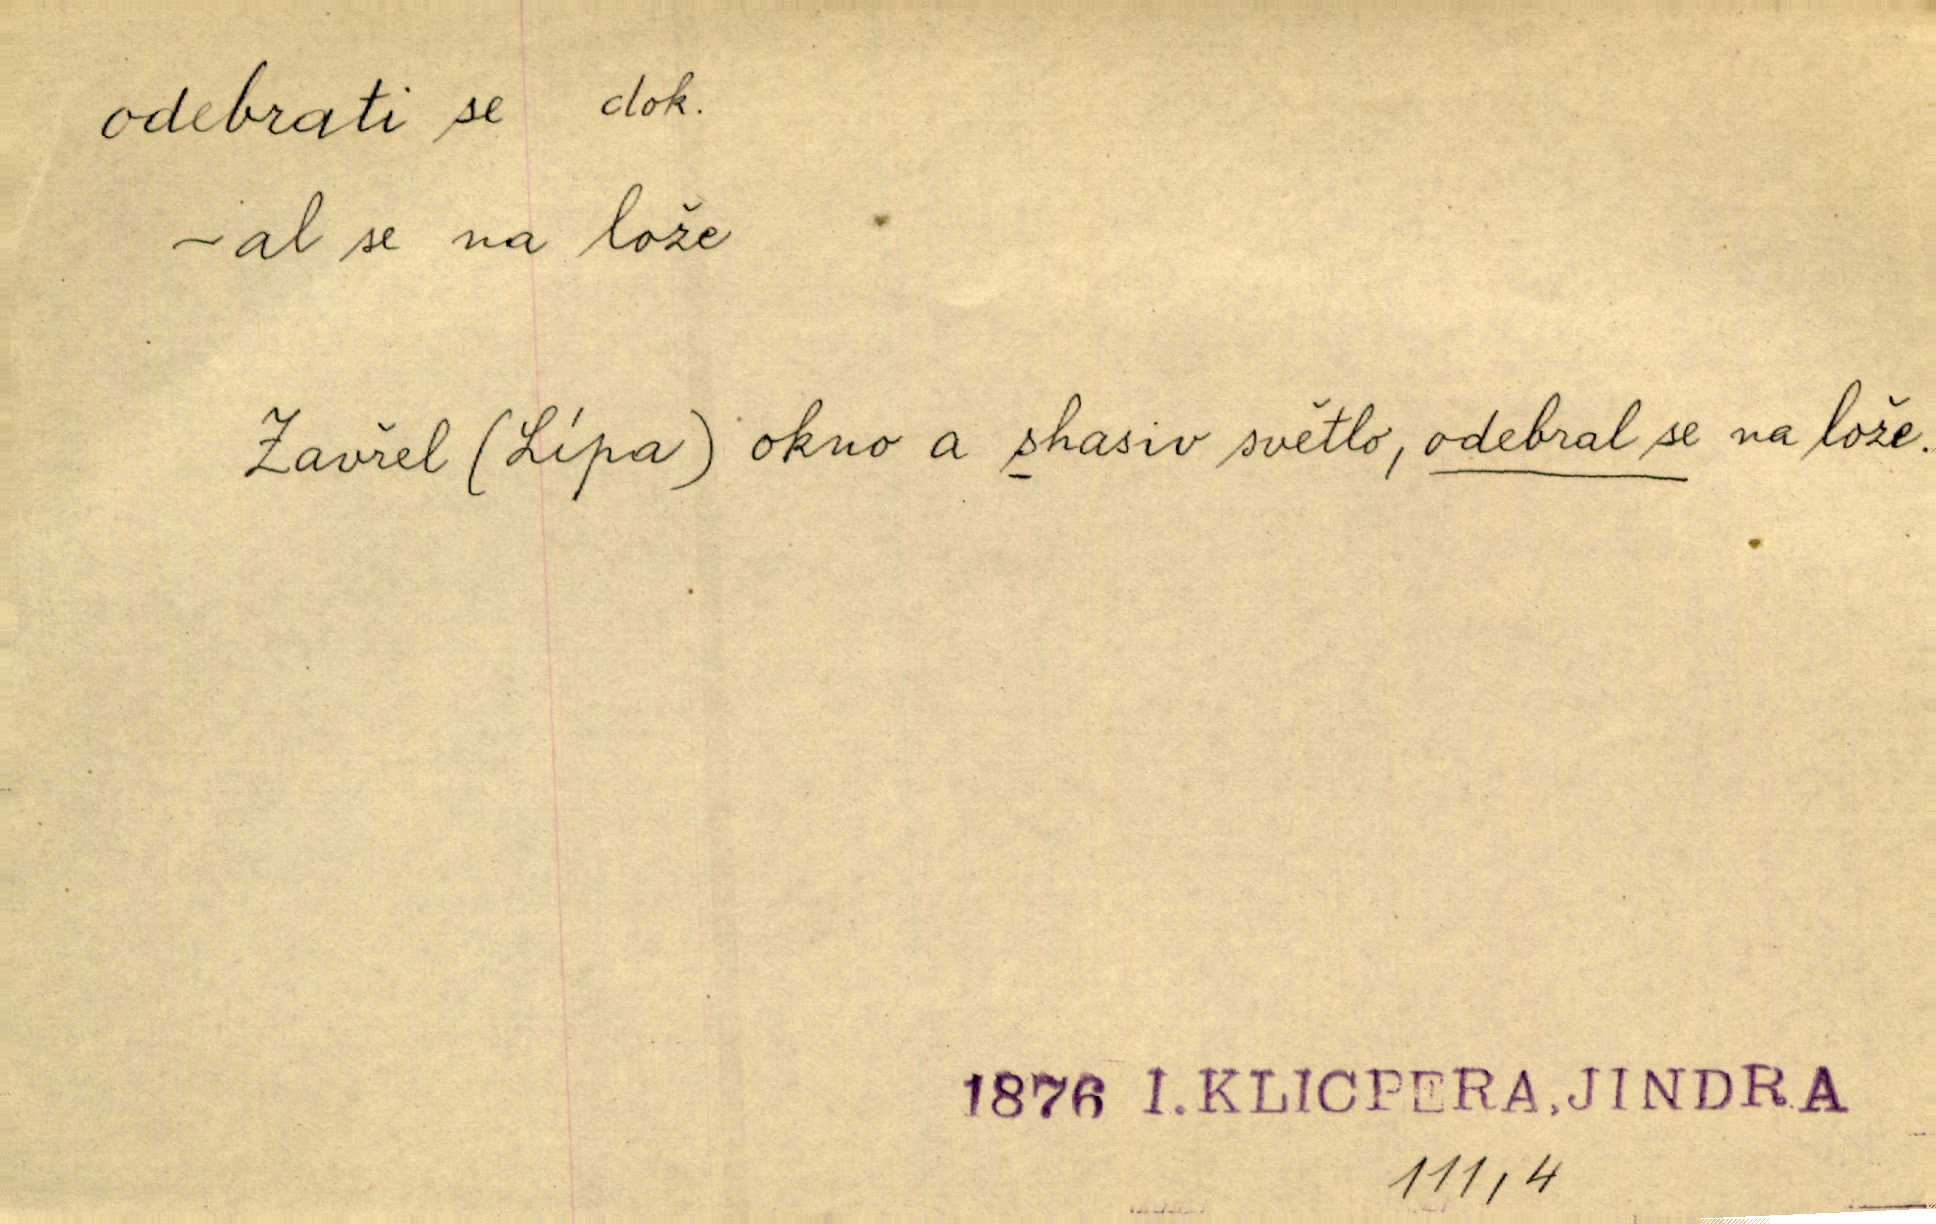 odebrati se dok.
~al se na lože
Zavřel (Lípa) okno a shasiv světlo, odebral se na lože.
1876 I. KLICPERA, JINDRA
111, 4